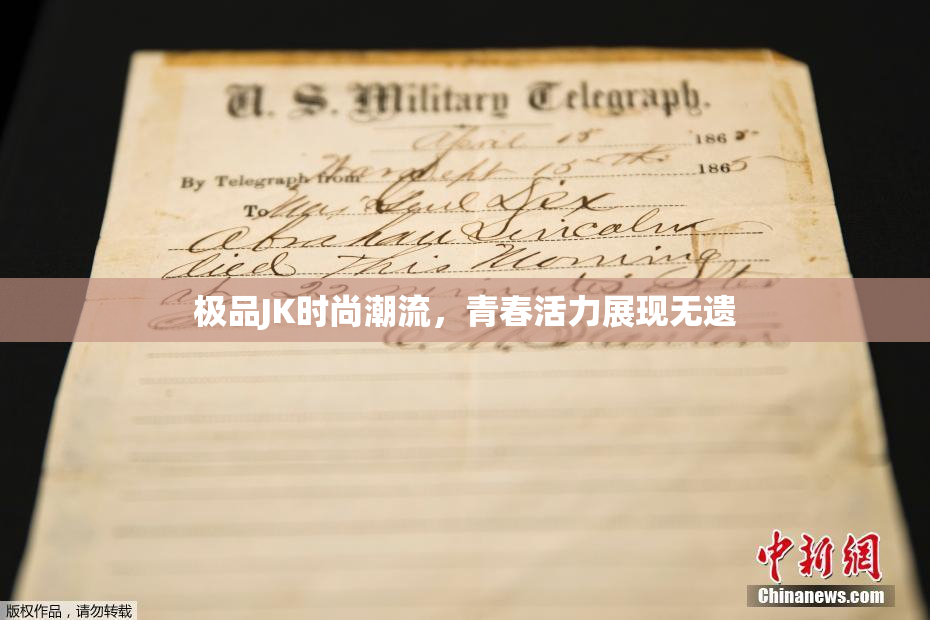 U. S. Military Telegraph.
April 15 1865
By Telegraph from War Dept 15th 1865
To Maj Genl Dix
Abraham Lincoln
died This Morning
at 22 minutes after
极品JK时尚潮流，青春活力展现无遗
E. M. Stanton
中新網
Chinanews.com
版权作品，请勿转载